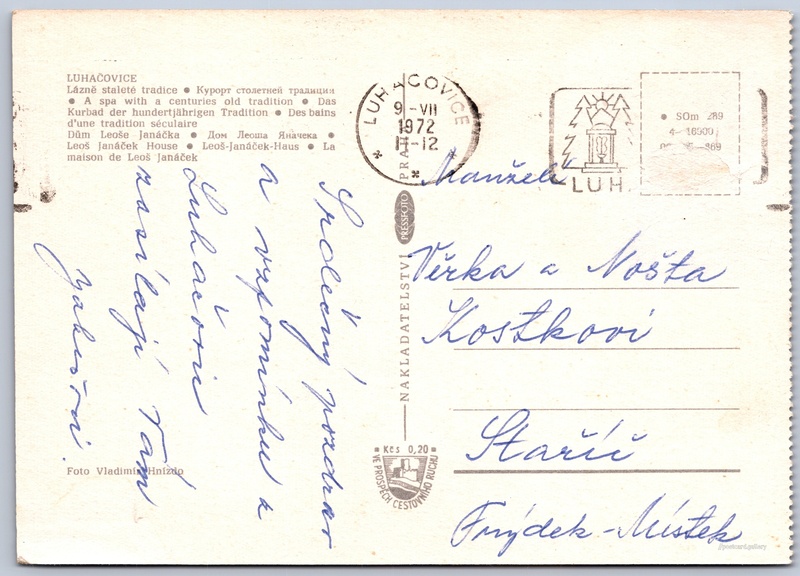 LUHAČOVICE
Lázně staleté tradice ● Курорт столетней традиции
● A spa with a centuries old tradition ● Das
Kurbad der hundertjährigen Tradition ● Des bains
d'une tradition séculaire
Dům Leoše Janáčka ● Дом Леоша Яначека ●
Leoš Janáček House ● Leoš-Janáček-Haus ● La
maison de Leoš Janáček
Srdečný pozdrav
a vzpomínku z
Luhačovic
zasílají Vám
Foto Vladimír Hnízdo
LUHAČOVICE
9-VII
1972
11-12
LUH
SOm 289
NAKLADATELSTVÍ
PRESSFOTO
PRA
Manželé
Věrka a Nošta
Kostkovi
Staříč
Frýdek-Místek
Kčs 0,20
VE PROSPĚCH CESTOVNÍHO RUCHU
@postcard.gallery